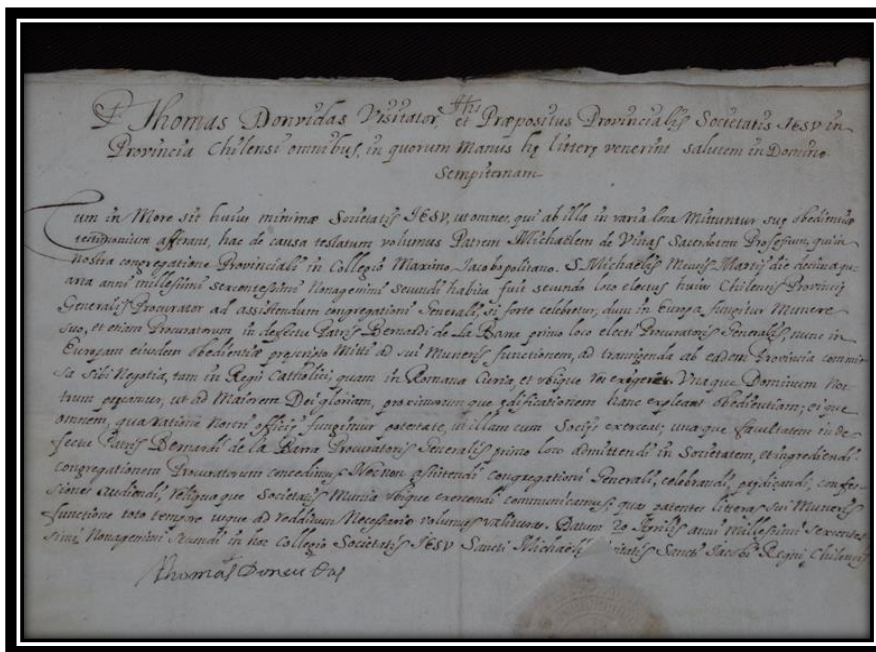 P. Thomas Donvidas Visitator, et Præpositus Provincialis Societatis IESV in
Provincia Chilensi omnibus, in quorum manus hę litterę venerint salutem in Domino
sempiternam
Cum in More sit huius minimæ Societatis IESV, ut omnes, qui ab illa in varia loca Mittuntur suę obedientiæ
testimonium afferant, hac de causa testatum volumus Patrem Michaelem de Viñas Sacerdotem Professum, qui in
nostra congregatione Provinciali in Collegio Maximo Jacobopolitano S. Michaelis Mensis Martij die decima qu-
arta anni millesimi sexcentesimi Nonagesimi secundi habita fuit secundo loco electus huius Chilensis Provincię
Generalis Procurator ad assistendum congregationi Generali, si forte celebretur, dum in Europa fungitur Munere
suo, et etiam Procuratorum in defectu Patris Bernardi de La Barra primo loco electi Procuratoris Generalis, nunc in
Europam eiusdem obedientiæ pręscripto Mitti ad sui Muneris functionem, ad transigenda ab eadem Provincia commis-
sa sibi Negotia, tam in Regij Catholici, quam in Romana Curia, et vbique res exigerit. Vnaque Dominum nos-
trum precamur, ut ad Maiorem Dei gloriam, proximorumque ędificationem hanc expleant obedientiam; eique
omnem, qua ratione nostri officij fungimur potestate, ut illam cum Socijs exerceat; unaque facultatem in de-
fectu Patris Bernardi de la Barra Procuratoris Generalis primo loco admittendi in Societatem, et ingrediendi
congregationem Procuratorum concedimus. Necnon assistendi congregationi Generali, celebrandi, prędicandi, confes-
siones audiendi, reliquaque Societatis Munia vbique exercendi communicamus; quas patentes literas sui Muneris
functione toto tempore usque ad redditum Necessario volumus valituras. Datum 20 Aprilis anni Millesimi sexcentes-
simi Nonagesimi secundi in hoc Collegio Societatis IESV Sancti Michaelis Civitatis Sancti Jacobi Regni Chilensis
Thomas Donvidas